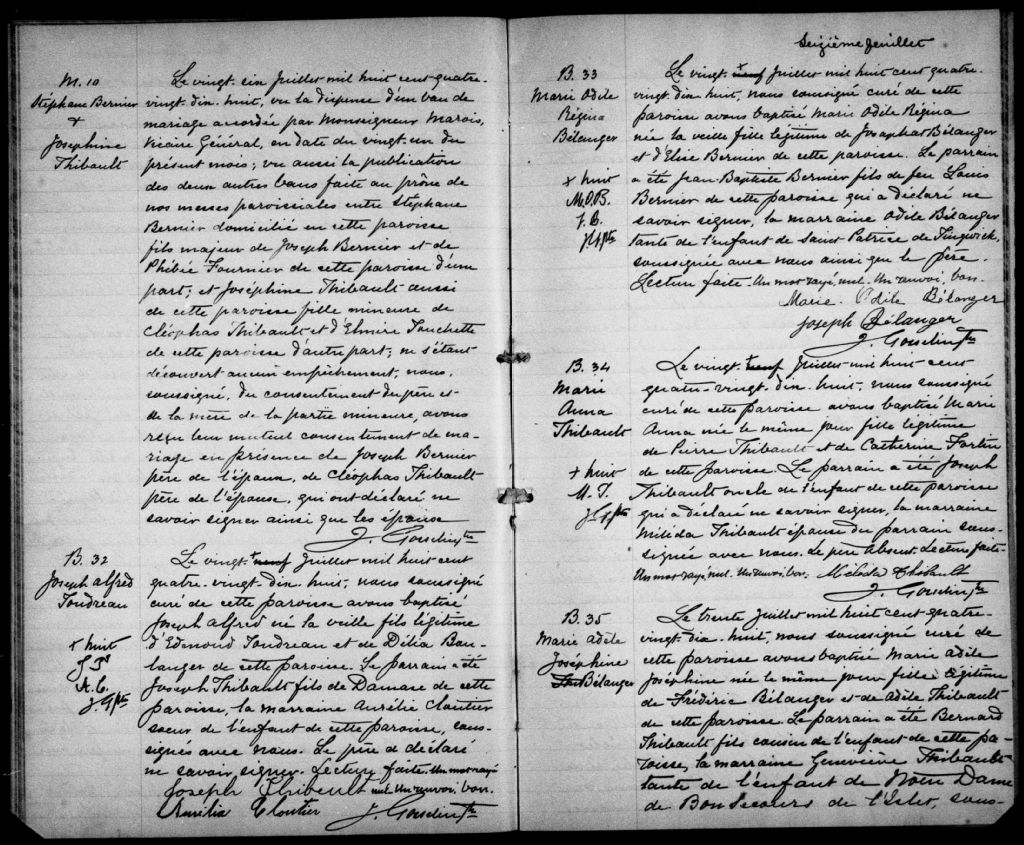 M. 10
Stéphane Bernier
+
Joséphine
Thibault
Le vingt-six Juillet mil huit cent quatre-
vingt-dix-huit, vu la dispense d'un ban de
mariage accordée par Monseigneur Marois,
Vicaire Général, en date du vingt-un du
présent mois; vu aussi la publication
des deux autres bans faite au prône de
nos messes paroissiales entre Stéphane
Bernier domicilié en cette paroisse
fils majeur de Joseph Bernier et de
Phébée Fournier de cette paroisse d'une
part; et Joséphine Thibault aussi
de cette paroisse fille mineure de
Cléophas Thibault et d'Elmire Touchette
de cette paroisse d'autre part; ne s'étant
découvert aucun empêchement, nous,
soussigné, du consentement du père et
de la mère de la partie mineure, avons
reçu leur mutuel consentement de ma-
riage en présence de Joseph Bernier
père de l'époux, de Cléophas Thibault
père de l'épouse, qui ont déclaré ne
savoir signer ainsi que les époux
J. Gosselin Ptre
B. 32
Joseph Alfred
Toudreau
+ huit
J. T.
A. C.
J. G. ptre
Le vingt + neuf Juillet mil huit cent
quatre-vingt-dix-huit, nous soussigné
curé de cette paroisse avons baptisé
Joseph Alfred né la veille fils légitime
d'Edmond Toudreau et de Délia Bou-
langer de cette paroisse. Le parrain a été
Joseph Thibault fils de Damase de cette
paroisse, la marraine Aurélie Cloutier
sœur de l'enfant de cette paroisse, sous-
signés avec nous. Le père a déclaré
ne savoir signer. Lecture faite. Un mot rayé
nul. Un renvoi, bon.
Joseph Thibault
Aurélia Cloutier J. Gosselin Ptre
Seizième feuillet
B. 33
Marie Odile
Régina
Bélanger
+ huit
M. O. B.
J. B.
J. G. ptre
Le vingt + neuf Juillet mil huit cent quatre-
vingt-dix-huit, nous soussigné curé de cette
paroisse avons baptisé Marie Odile Régina
née la veille fille légitime de Josaphat Bélanger
et d'Elise Bernier de cette paroisse. Le parrain
a été Jean-Baptiste Bernier fils de feu Louis
Bernier de cette paroisse qui a déclaré ne
savoir signer, la marraine Odile Bélanger
tante de l'enfant de Saint Patrice de Tingwick,
soussignée avec nous ainsi que le père.
Lecture faite. Un mot rayé, nul. Un renvoi, bon.
Marie Odile Bélanger
Joseph Bélanger
J. Gosselin Ptre
B. 34
Marie
Anna
Thibault
+ huit
M. T.
J. G. ptre
Le vingt + neuf Juillet mil huit cent
quatre-vingt-dix-huit, nous soussigné
curé de cette paroisse avons baptisé Marie
Anna née le même jour fille légitime
de Pierre Thibault et de Catherine Fortin
de cette paroisse. Le parrain a été Joseph
Thibault oncle de l'enfant de cette paroisse
qui a déclaré ne savoir signer, la marraine
Méléda Thibault épouse du parrain sous-
signée avec nous. Le père absent. Lecture faite.
Un mot rayé, nul. Un renvoi bon. Méleda Thibault
J. Gosselin Ptre
B. 35
Marie Adèle
Joséphine
Bélanger
Le trente Juillet mil huit cent quatre-
vingt-dix-huit, nous soussigné curé de
cette paroisse avons baptisé Marie Adèle
Joséphine née le même jour fille légitime
de Frédéric Bélanger et de Adèle Thibault
de cette paroisse. Le parrain a été Bernard
Thibault fils cousin de l'enfant de cette pa-
roisse, la marraine Geneviève Thibault
tante de l'enfant de Notre Dame
de Bonsecours de l'Islet, sous-